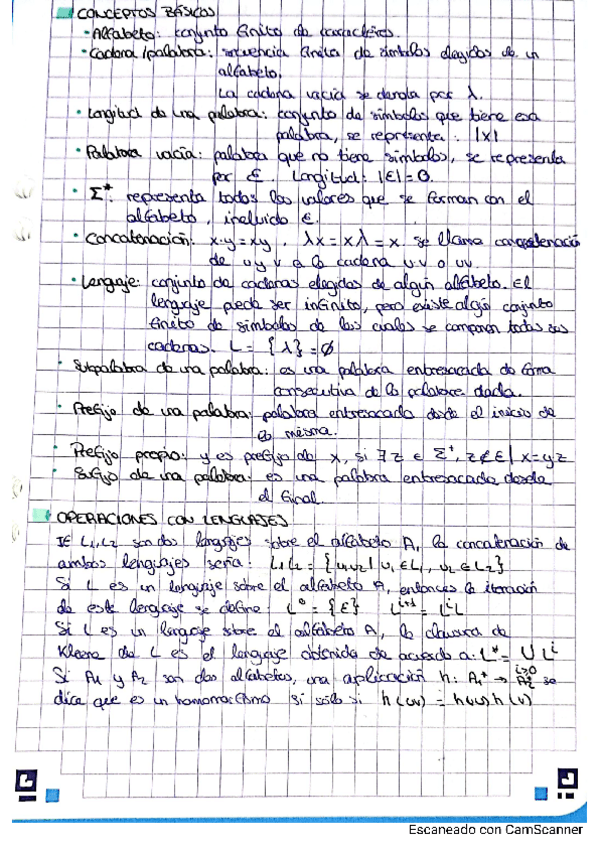 CONCEPTOS BÁSICOS
· Alfabeto: conjunto finito de caracteres.
· Cadena / palabra: secuencia finita de símbolos elegidos de un
alfabeto.
La cadena vacía se denota por λ.
· Longitud de una palabra: conjunto de símbolos que tiene esa
palabra, se representa: |x|
· Palabra vacía: palabra que no tiene símbolos, se representa
por Ɛ. Longitud: |Ɛ| = 0.
· Σ*: representa todos los valores que se forman con el
alfabeto, incluido Ɛ.
· Concatenación: x·y = xy, λx = xλ = x. se llama concatenación
de u y v a la cadena u·v o uv.
· Lenguaje: conjunto de cadenas elegidas de algún alfabeto. El
lenguaje puede ser infinito, pero existe algún conjunto
finito de símbolos de los cuales se componen todas sus
cadenas. L = {λ} = Ø
· Subpalabra de una palabra: es una palabra entresacada de forma
consecutiva de la palabra dada.
· Prefijo de una palabra: palabra entresacada desde el inicio de
la misma.
· Prefijo propio: y es prefijo de x, si ∃ z ∈ Σ*, z ≠ Ɛ | x = yz
· Sufijo de una palabra: es una palabra entresacada desde
el final.
OPERACIONES CON LENGUAJES
L1, L2 son dos lenguajes sobre el alfabeto A, la concatenación de
ambos lenguajes sería: L1L2 = {u1u2 | u1 ∈ L1, u2 ∈ L2}
Si L es un lenguaje sobre el alfabeto A, entonces la iteración
de este lenguaje se define: L⁰ = {Ɛ} Lⁱ⁺¹ = LⁱL
Si L es un lenguaje sobre el alfabeto A, la clausura de
Kleene de L es el lenguaje obtenido de acuerdo a: L* = ∪ Lⁱ
i≥0
Si A1 y A2 son dos alfabetos, una aplicación h: A1* → A2* se
dice que es un homomorfismo si sólo si h(uv) = h(u)h(v)
Escaneado con CamScanner